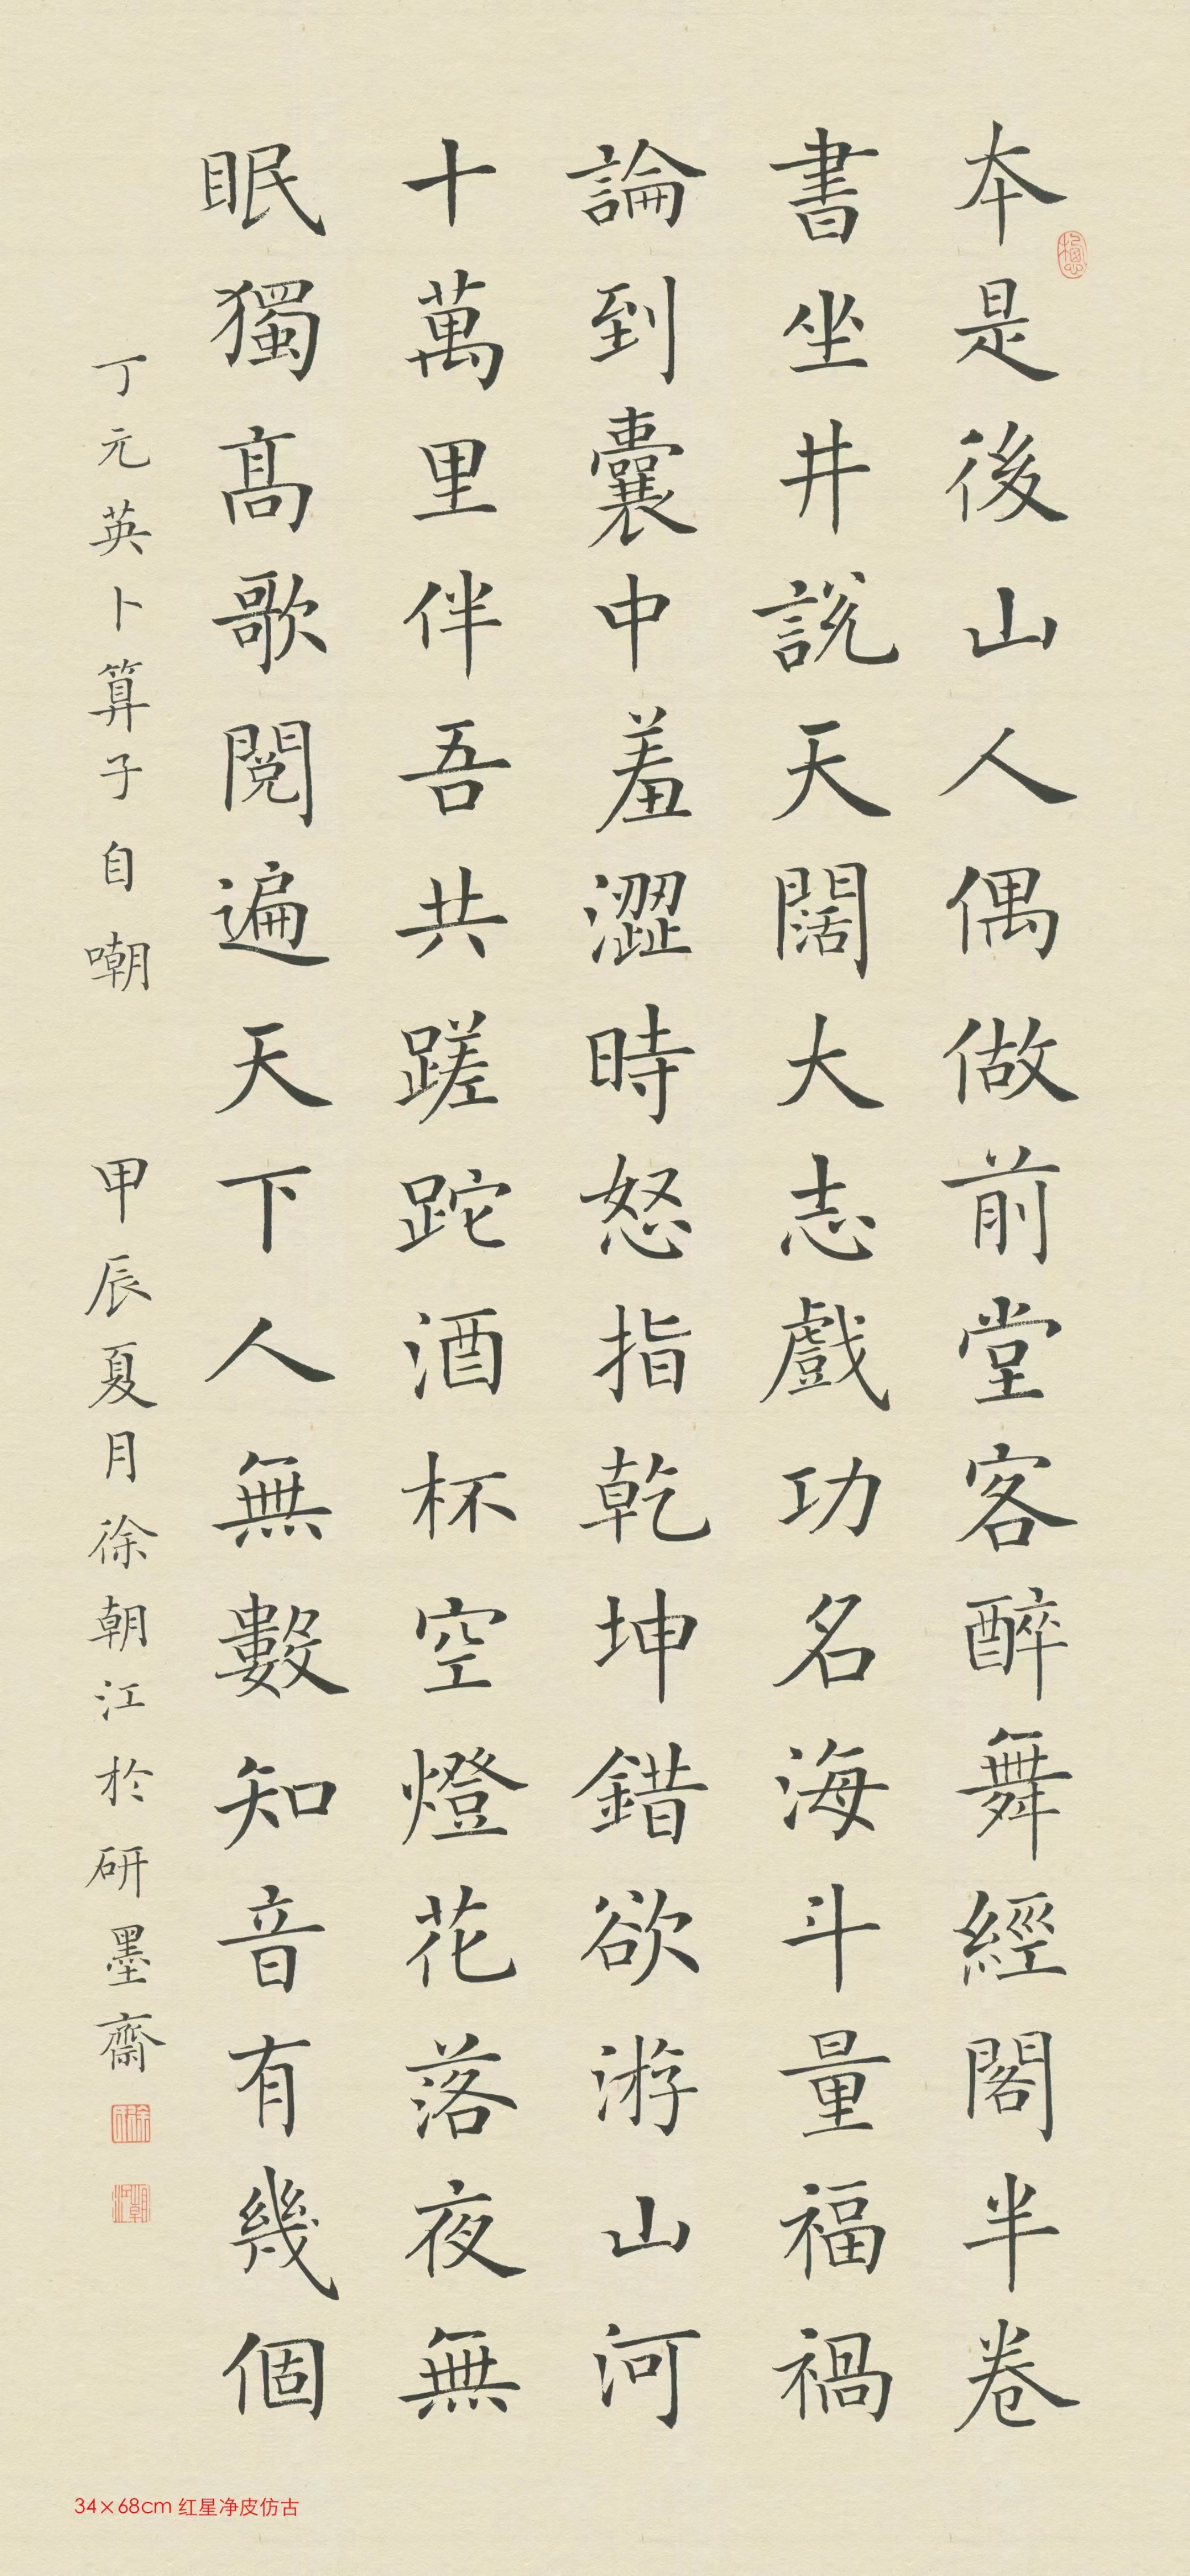 本是後山人偶做前堂客醉舞經閣半卷
書坐井說天闊大志戲功名海斗量福禍
論到囊中羞澀時怒指乾坤錯欲游山河
十萬里伴吾共蹉跎酒杯空燈花落夜無
眠獨高歌閱遍天下人無數知音有幾個
丁元英卜算子自嘲 甲辰夏月徐朝江於研墨齋
34×68cm 红星净皮仿古